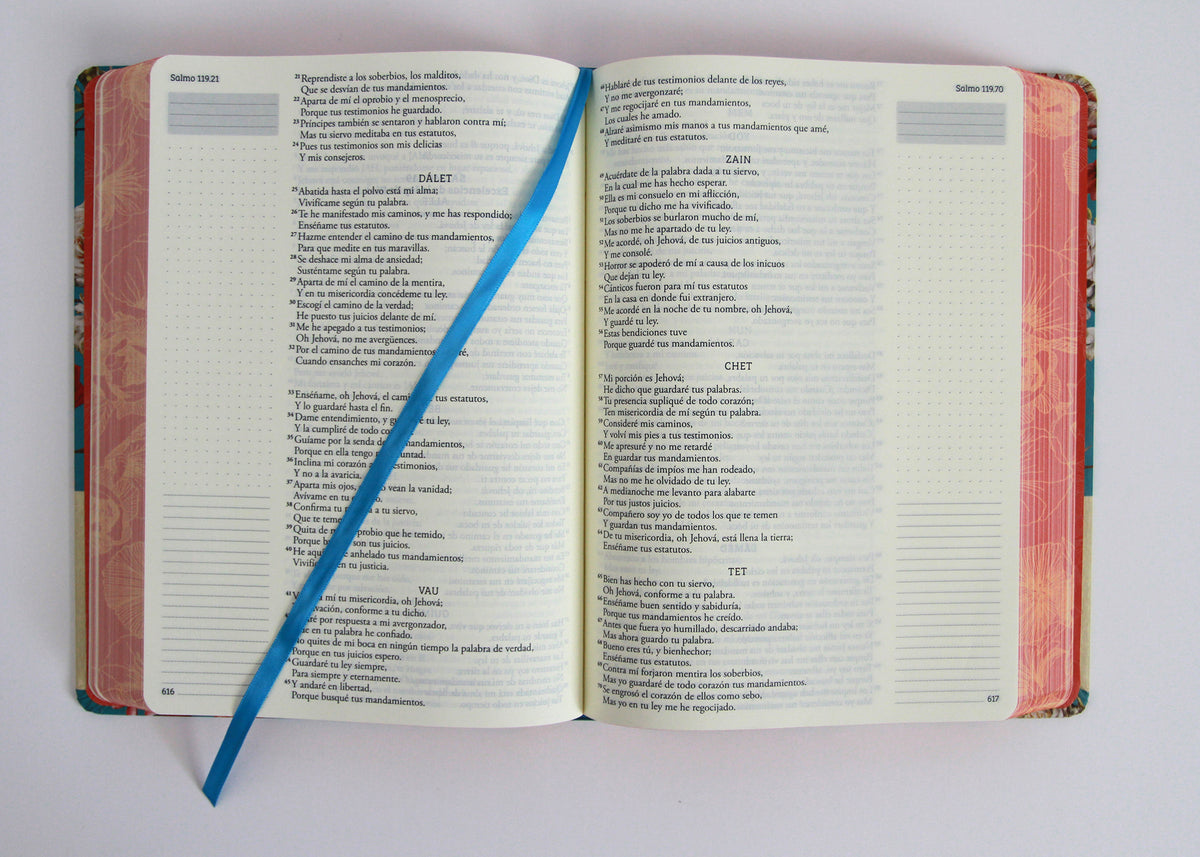 Salmo 119.21
21 Reprendiste a los soberbios, los malditos,
Que se desvían de tus mandamientos.
22 Aparta de mí el oprobio y el menosprecio,
Porque tus testimonios he guardado.
23 Príncipes también se sentaron y hablaron contra mí;
Mas tu siervo meditaba en tus estatutos,
24 Pues tus testimonios son mis delicias
Y mis consejeros.
DÁLET
25 Abatida hasta el polvo está mi alma;
Vivifícame según tu palabra.
26 Te he manifestado mis caminos, y me has respondido;
Enséñame tus estatutos.
27 Hazme entender el camino de tus mandamientos,
Para que medite en tus maravillas.
28 Se deshace mi alma de ansiedad;
Susténtame según tu palabra.
29 Aparta de mí el camino de la mentira,
Y en tu misericordia concédeme tu ley.
30 Escogí el camino de la verdad;
He puesto tus juicios delante de mí.
31 Me he apegado a tus testimonios;
Oh Jehová, no me avergüences.
32 Por el camino de tus mandamientos
Cuando ensanches mi corazón.
33 Enséñame, oh Jehová, el tus estatutos,
Y lo guardaré hasta el fin.
34 Dame entendimiento, y tu ley,
Y la cumpliré de todo
35 Guíame por la senda de mandamientos,
Porque en ella tengo
36 Inclina mi corazón a testimonios,
Y no a la avaricia.
37 Aparta mis ojos, vean la vanidad;
Avívame en tu
38 Confirma tu a tu siervo,
Que te
39 Quita de oprobio que he temido,
Porque son tus juicios.
40 He anhelado tus mandamientos;
en tu justicia.
VAU
41 a mí tu misericordia, oh Jehová;
conforme a tu dicho.
por respuesta a mi avergonzador,
en tu palabra he confiado.
No quites de mi boca en ningún tiempo la palabra de verdad,
Porque en tus juicios espero.
Guardaré tu ley siempre,
Para siempre y eternamente.
45 Y andaré en libertad,
Porque busqué tus mandamientos.
616
Salmo 119.70
46 Hablaré de tus testimonios delante de los reyes,
Y no me avergonzaré;
47 Y me regocijaré en tus mandamientos,
Los cuales he amado.
48 Alzaré asimismo mis manos a tus mandamientos que amé,
Y meditaré en tus estatutos.
ZAIN
49 Acuérdate de la palabra dada a tu siervo,
En la cual me has hecho esperar.
50 Ella es mi consuelo en mi aflicción,
Porque tu dicho me ha vivificado.
51 Los soberbios se burlaron mucho de mí,
Mas no me he apartado de tu ley.
52 Me acordé, oh Jehová, de tus juicios antiguos,
Y me consolé.
53 Horror se apoderó de mí a causa de los inicuos
Que dejan tu ley.
54 Cánticos fueron para mí tus estatutos
En la casa en donde fui extranjero.
55 Me acordé en la noche de tu nombre, oh Jehová,
Y guardé tu ley.
56 Estas bendiciones tuve
Porque guardé tus mandamientos.
CHET
57 Mi porción es Jehová;
He dicho que guardaré tus palabras.
58 Tu presencia supliqué de todo corazón;
Ten misericordia de mí según tu palabra.
59 Consideré mis caminos,
Y volví mis pies a tus testimonios.
60 Me apresuré y no me retardé
En guardar tus mandamientos.
61 Compañías de impíos me han rodeado,
Mas no me he olvidado de tu ley.
62 A medianoche me levanto para alabarte
Por tus justos juicios.
63 Compañero soy yo de todos los que te temen
Y guardan tus mandamientos.
64 De tu misericordia, oh Jehová, está llena la tierra;
Enséñame tus estatutos.
TET
65 Bien has hecho con tu siervo,
Oh Jehová, conforme a tu palabra.
66 Enséñame buen sentido y sabiduría,
Porque tus mandamientos he creído.
67 Antes que fuera yo humillado, descarriado andaba;
Mas ahora guardo tu palabra.
68 Bueno eres tú, y bienhechor;
Enséñame tus estatutos.
69 Contra mí forjaron mentira los soberbios,
Mas yo guardaré de todo corazón tus mandamientos.
70 Se engrosó el corazón de ellos como sebo,
Mas yo en tu ley me he regocijado.
617